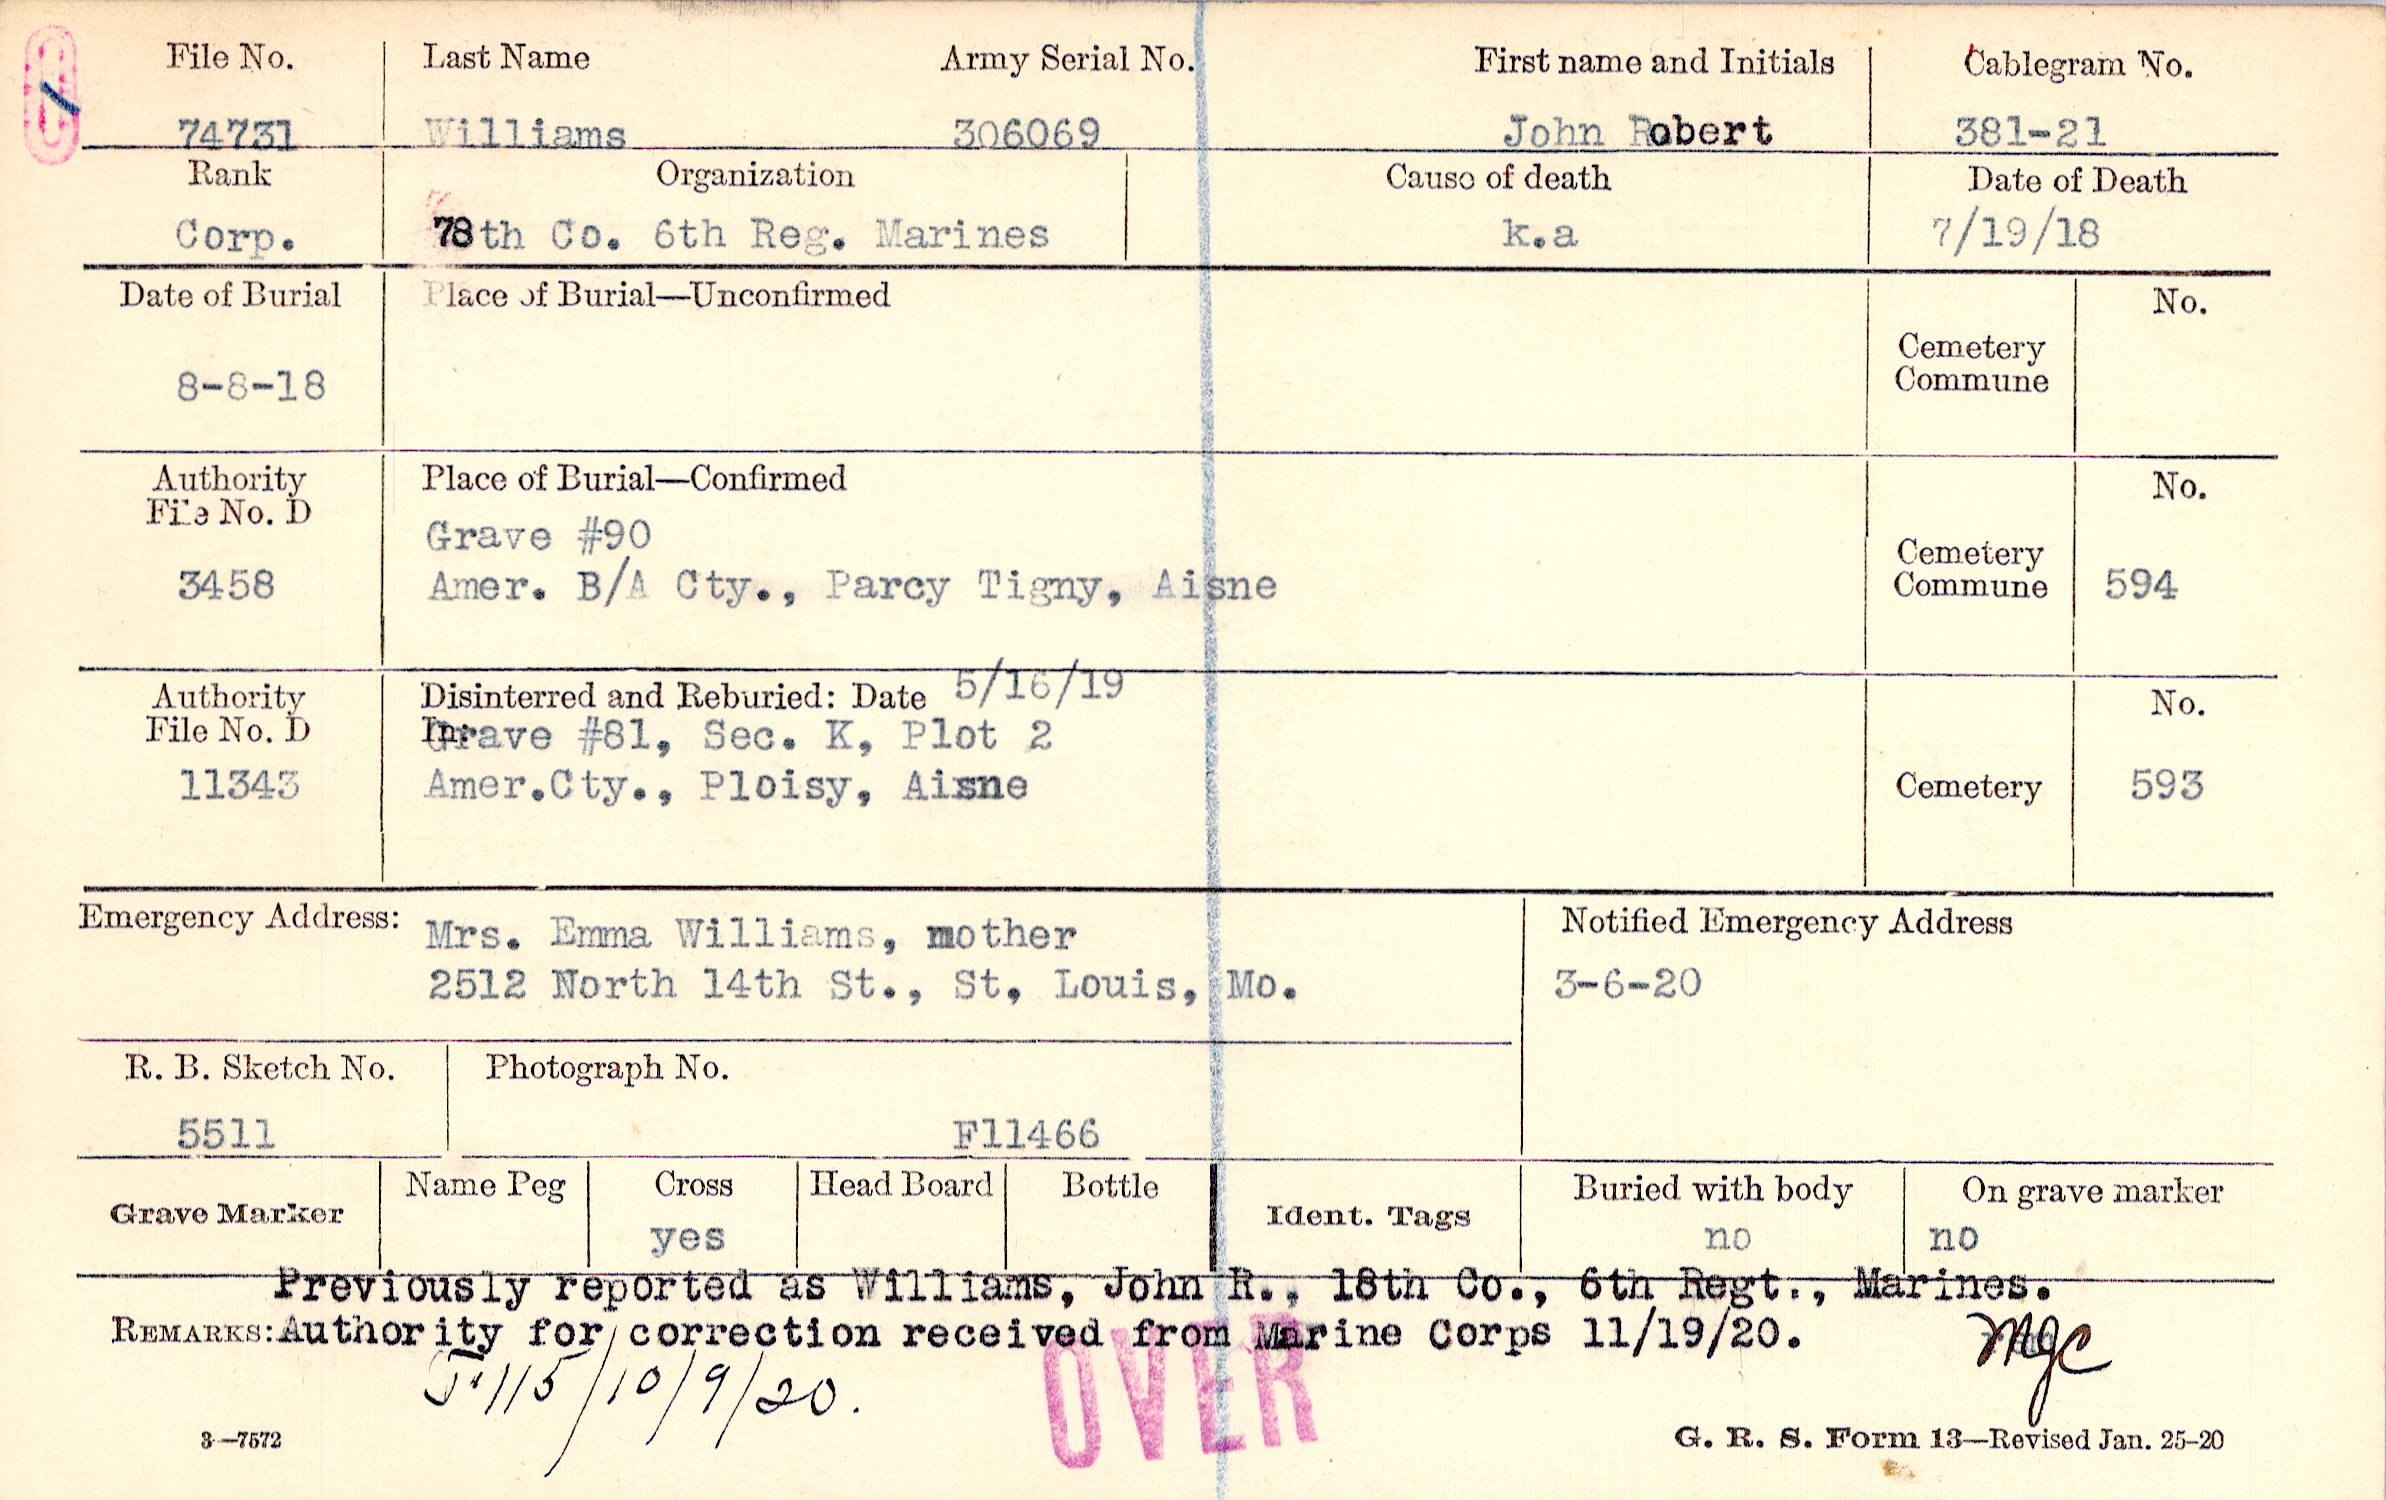 File No. Last Name Army Serial No. First name and Initials Cablegram No.
74731 Williams 306069 John Robert 381-21
Rank Organization Cause of death Date of Death
Corp. 78th Co. 6th Reg. Marines k.a 7/19/18
Date of Burial Place of Burial—Unconfirmed No.
Cemetery
Commune
8-8-18
Authority Place of Burial—Confirmed No.
File No. D
Grave #90
3458 Amer. B/A Cty., Parcy Tigny, Aisne Cemetery
Commune 594
Authority Disinterred and Reburied: Date 5/16/19 No.
File No. D In: Grave #81, Sec. K, Plot 2
11343 Amer.Cty., Ploisy, Aisne Cemetery 593
Emergency Address: Mrs. Emma Williams, mother Notified Emergency Address
2512 North 14th St., St, Louis, Mo. 3-6-20
R. B. Sketch No. Photograph No.
5511 F11466
Grave Marker Name Peg Cross Head Board Bottle Ident. Tags Buried with body On grave marker
yes no no
Previously reported as Williams, John R., 18th Co., 6th Regt., Marines.
REMARKS: Authority for correction received from Marine Corps 11/19/20. MGC
115/10/9/20.
OVER
3—7572 G. R. S. Form 13—Revised Jan. 25-20